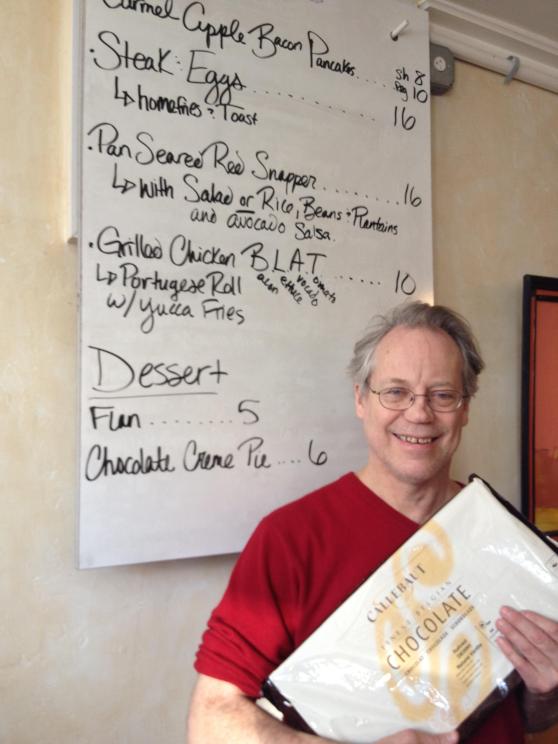 Carmel Apple Bacon Pancakes.... sh 8
10
·Steak & Eggs........... 16
↳ homefries & Toast
·Pan Seared Red Snapper........ 16
↳ with Salad or Rice, Beans + Plantains
and avocado Salsa.
·Grilled Chicken BLAT...... 10
acon ettuce vocado omato
↳ Portugese Roll
w/ Yucca Fries
Dessert
Flan........ 5
Chocolate Creme Pie.... 6
CALLEBAUT
FINEST BELGIAN
CHOCOLATE